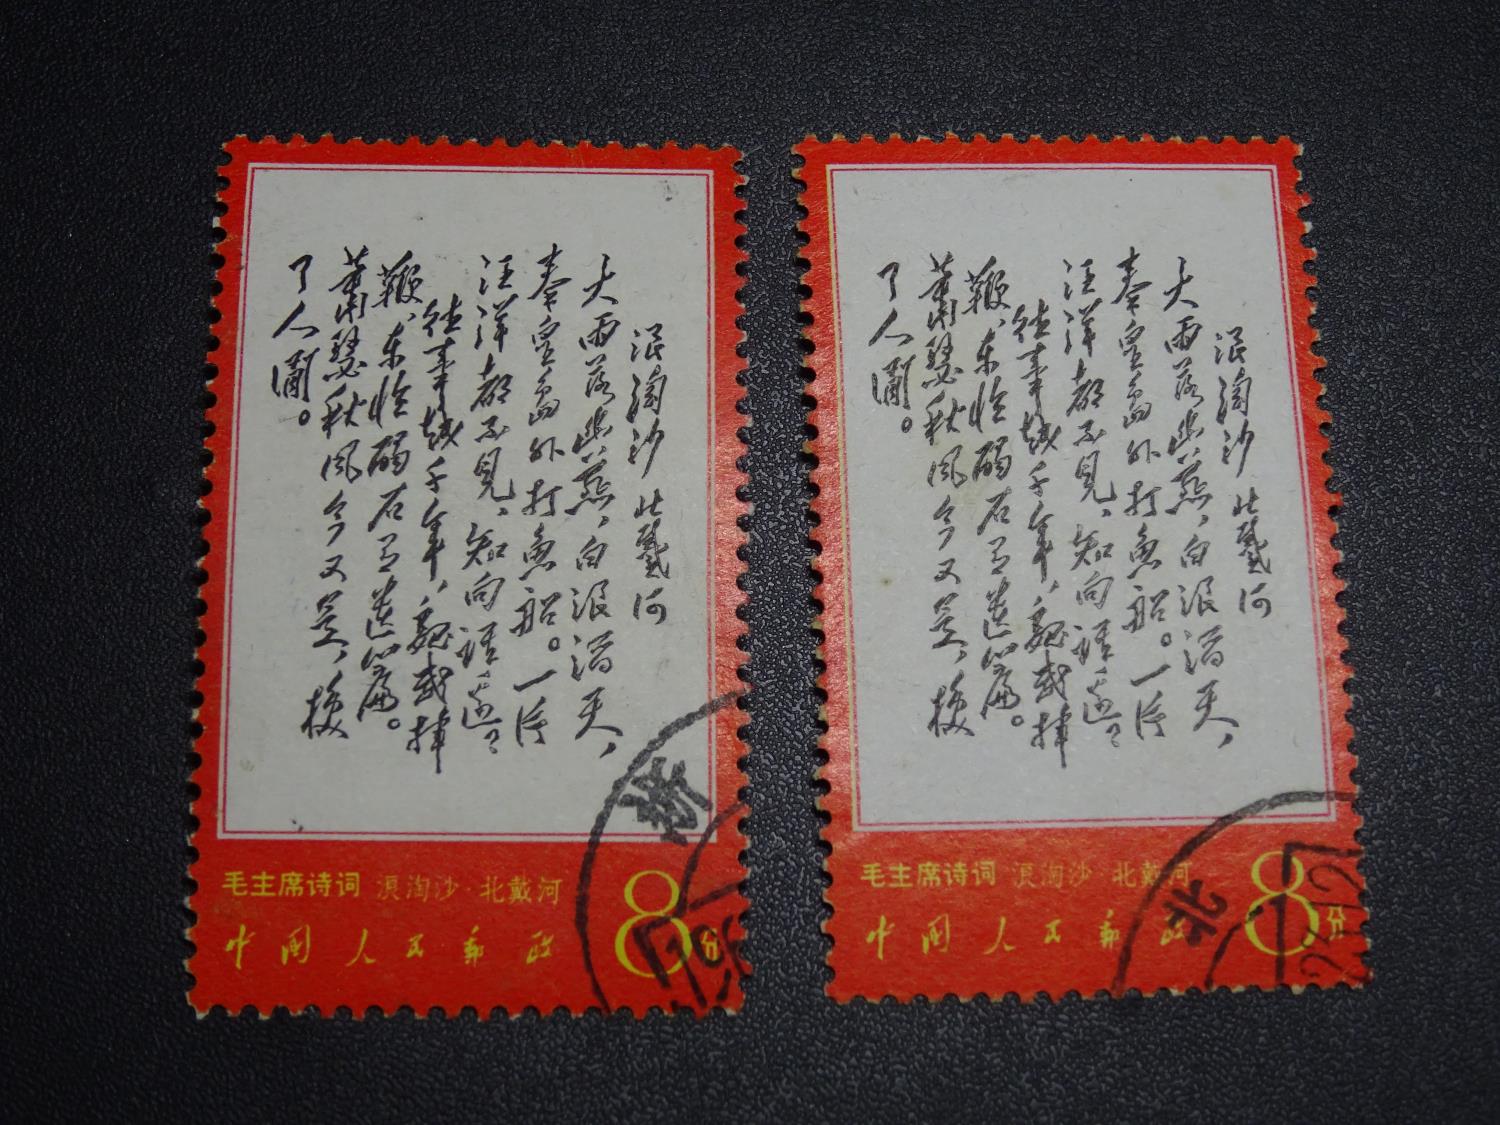 浪淘沙 北戴河
大雨落幽燕,白浪滔天,
秦皇岛外打鱼船。一片
汪洋都不见,知向谁边?
往事越千年,魏武挥
鞭,东临碣石有遗篇。
萧瑟秋风今又是,换
了人间。
毛主席诗词 浪淘沙·北戴河
中国人民邮政
8分
浪淘沙 北戴河
大雨落幽燕,白浪滔天,
秦皇岛外打鱼船。一片
汪洋都不见,知向谁边?
往事越千年,魏武挥
鞭,东临碣石有遗篇。
萧瑟秋风今又是,换
了人间。
毛主席诗词 浪淘沙·北戴河
中国人民邮政
8分
北